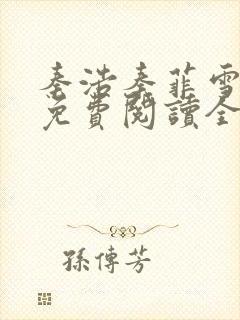 秦浩秦菲雪
免費閱讀全
孫傳芳